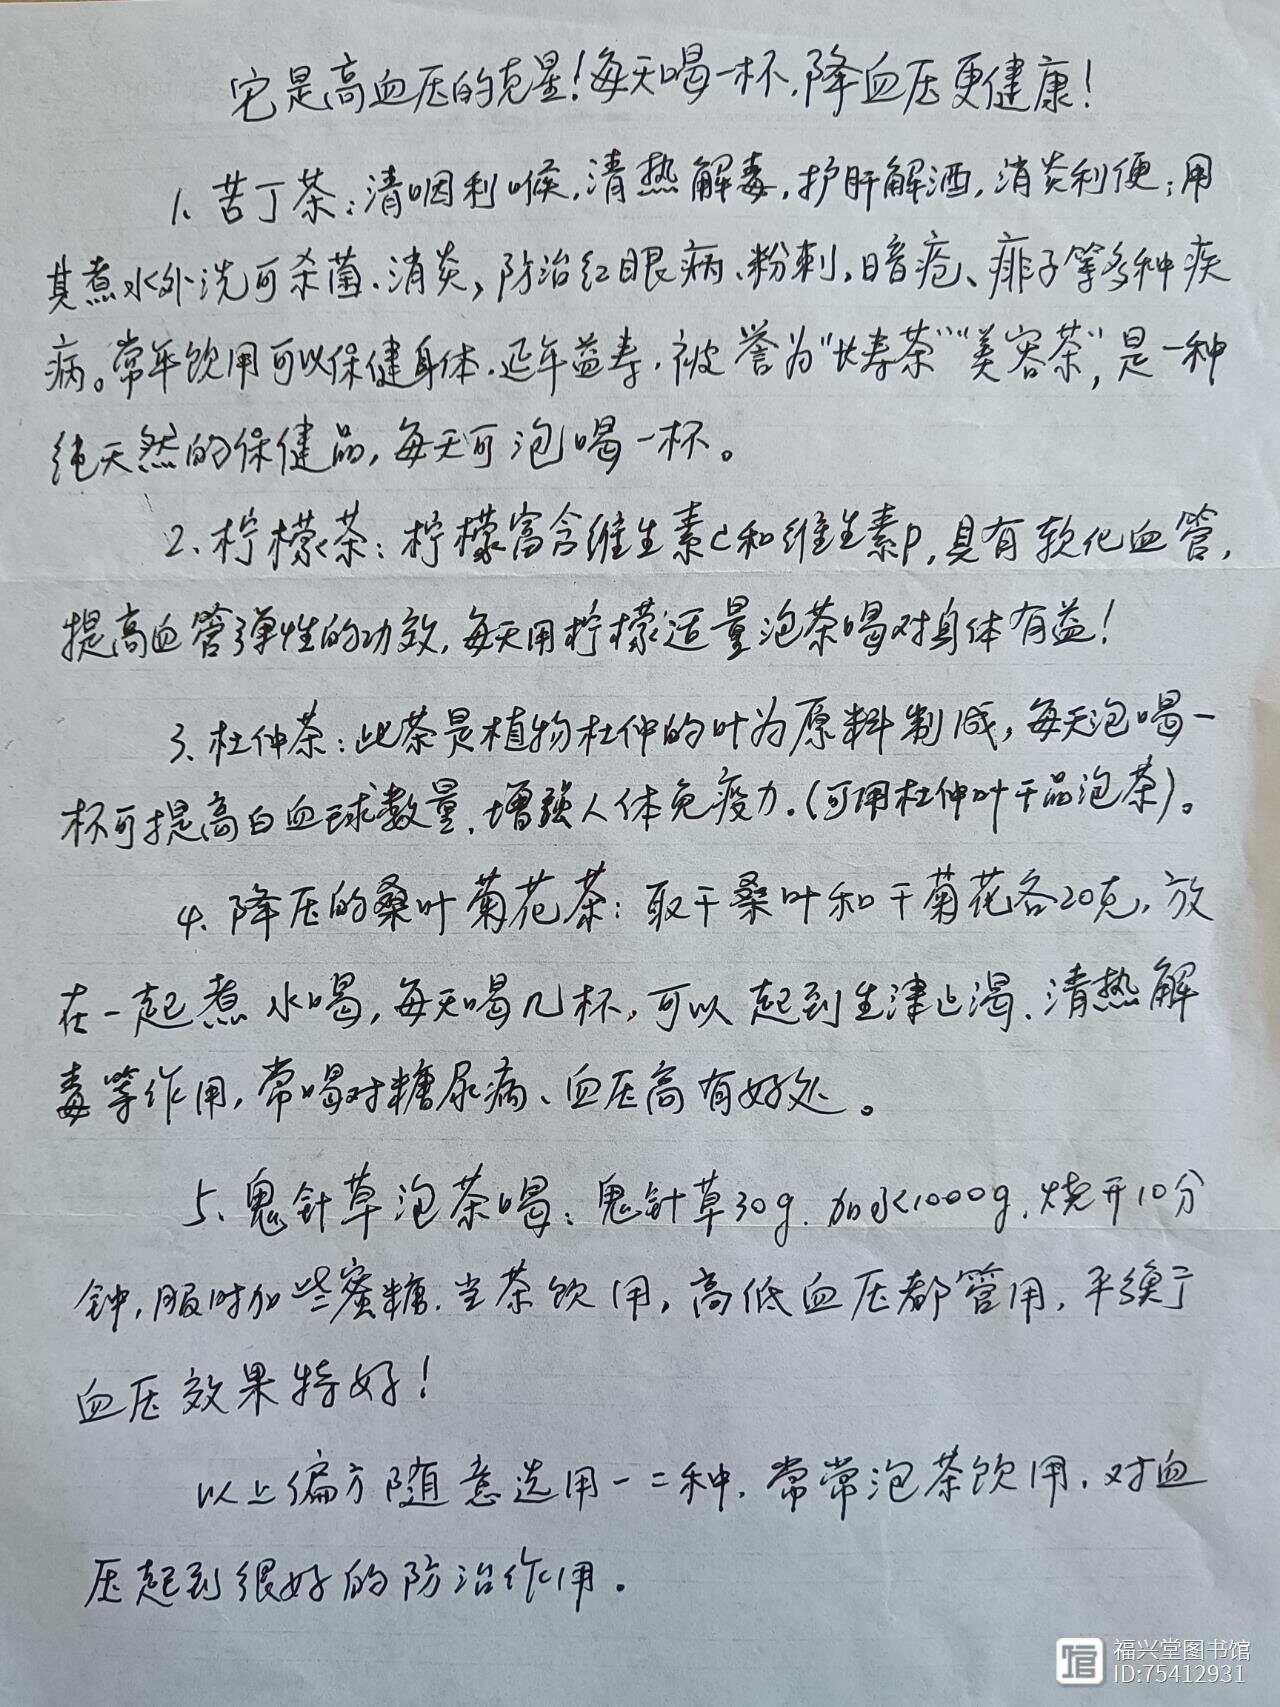 它是高血压的克星！每天喝一杯，降血压更健康！
1、苦丁茶：清咽利喉，清热解毒，护肝解酒，消炎利便；用
其煮水外洗可杀菌、消炎，防治红眼病、粉刺，暗疮、痱子等多种疾
病。常年饮用可以保健身体，延年益寿，被誉为“长寿茶”“美容茶”，是一种
纯天然的保健品，每天可泡喝一杯。
2、柠檬茶：柠檬富含维生素C和维生素P，具有软化血管，
提高血管弹性的功效，每天用柠檬适量泡茶喝对身体有益！
3、杜仲茶：此茶是植物杜仲的叶为原料制成，每天泡喝一
杯可提高白血球数量，增强人体免疫力。（可用杜仲叶干品泡茶）。
4、降压的桑叶菊花茶：取干桑叶和干菊花各20克，放
在一起煮水喝，每天喝几杯，可以起到生津止渴、清热解
毒等作用，常喝对糖尿病、血压高有好处。
5、鬼针草泡茶喝：鬼针草30g，加水1000g，烧开10分
钟，服时加些蜜糖，当茶饮用，高低血压都管用，平衡
血压效果特好！
以上偏方随意选用一二种，常常泡茶饮用，对血
压起到很好的防治作用。
福兴堂图书馆
ID:75412931